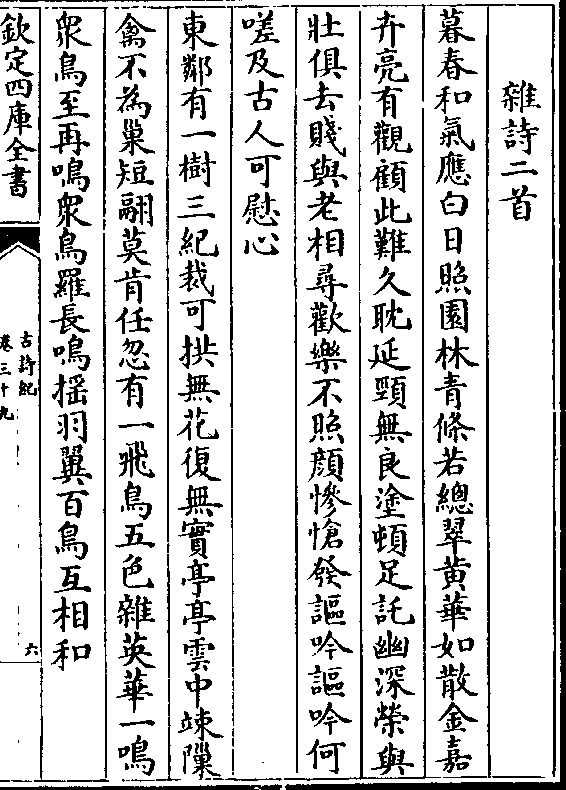 雜詩二首
暮春和氣應白日照園林青條若總翠黃華如散金嘉
卉亮有觀顧此難久耽延頸無良塗頓足託幽深榮與
壯俱去賤與老相尋歡樂不照顏慘愴發謳吟謳吟何
嗟及古人可慰心
東鄰有一樹三紀裁可拱無花復無實亭亭雲中竦隟
禽不為巢短翮莫肯任忽有一飛鳥五色雜英華一鳴
衆鳥至再鳴衆鳥羅長鳴揺羽翼百鳥互相和
欽定四庫全書
古詩紀
卷三十九
六